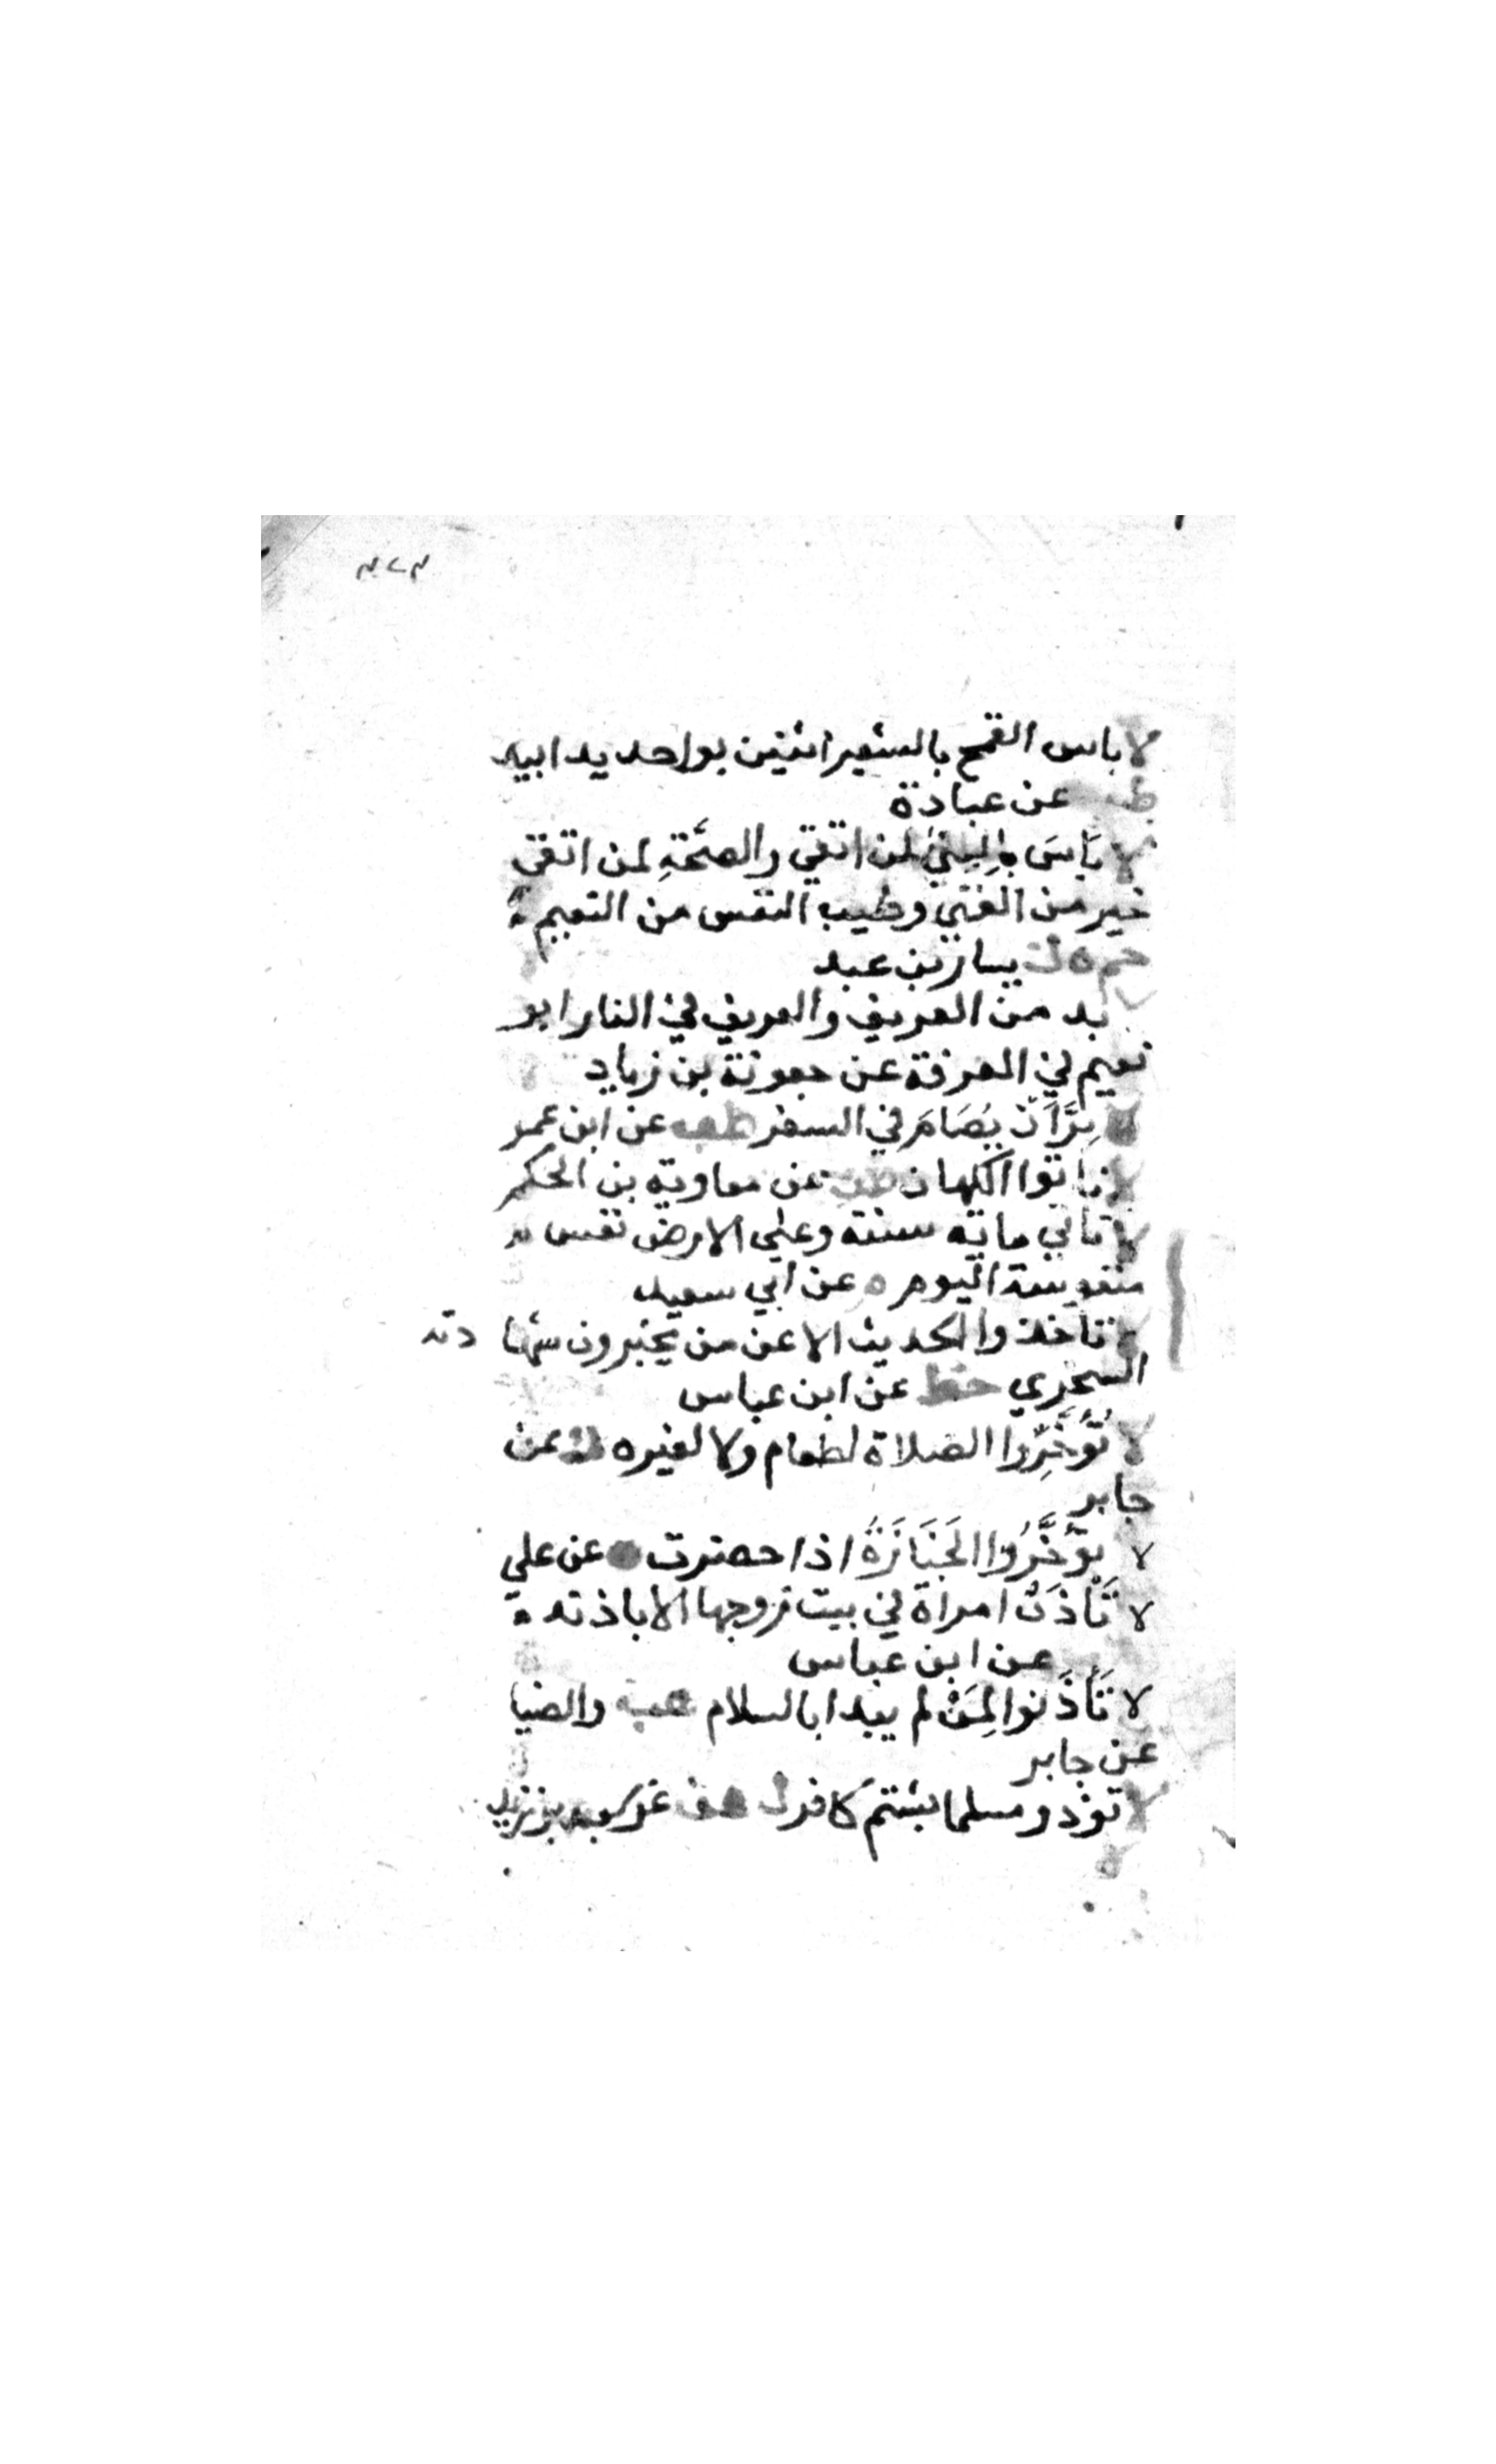 ٣٧٣
لا باس القمح بالشعير اثنين بواحد يدا بيد
طب عن عبادة
لا بَاسَ بالغِنيٰ لمن اتقي والصحَّةِ لمن اتقي
خير من الغني وطيب النفس من النعيم
حم ه ك يسار بن عبد
لا بد من العريف والعريف في النار ابو
نعيم في المعرفة عن جعونة بن زياد
لا بِرَّ اَنْ يُصَامَ في السفر طب عن ابن عمر
لا تاتوا الكهان طب عن معاوية بن الحكم
لا تاتي ماية سنة وعلي الارض نفس
منفوسة اليوم م عن ابي سعيد
لا تاخذوا الحديث الا عن من تجيزون شهادته
السجزي خط عن ابن عباس
لا تُؤَخِّرُوا الصلاة لطعام ولا لغيره د عن
جابر
لا تؤَخَّرُوا الجَنَازَةُ اذا حضرت ه عن علي
لا تَأْذَنْ امراة في بيت زوجها الا باذنه
عن ابن عباس
لا تَأْذَنوا لِمَنْ لم يبدا بالسلام هب والضيا
عن جابر
لا توذو مسلما بشتم كافر ك هق عن سعيد بن زيد